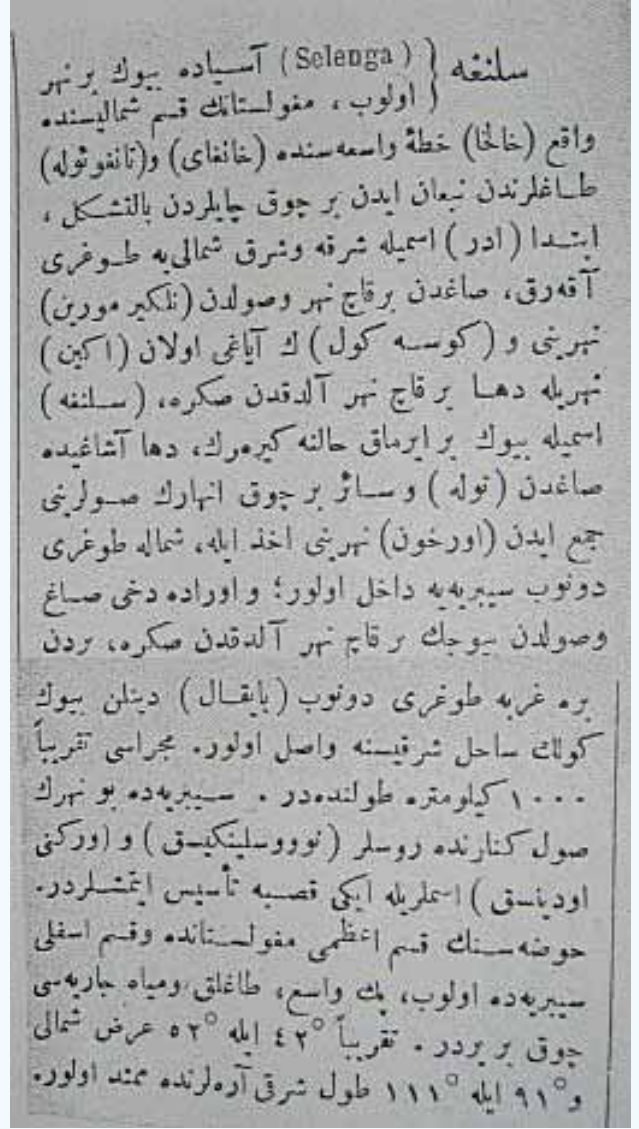 سلنغه { (Selenga) آسیاده بیوك بر نهر
اولوب ، مغولستانك قسم شمالیسنده
واقع (خالخا) خطهٔ واسعه‌سنده (خانغای) و(تانغوئوله)
طاغلرندن نبعان ایدن بر چوق چایلردن بالتشكل ،
ابتدا (ادر) اسمیله شرقه وشرق شمالی‌یه طوغری
آقه‌رق، صاغدن برقاچ نهر وصولدن (نلكیر مورین)
نهرینی و (كوسه كول) ك آیاغی اولان (اكین)
نهریله دها بر قاچ نهر آلدقدن صكره، (سلنغه)
اسمیله بیوك بر ایرماق حالنه كیره‌رك، دها آشاغیده
صاغدن (توله) وسائر بر چوق انهارك صولرینی
جمع ایدن (اورخون) نهرینی اخذ ایله، شماله طوغری
دونوب سیبریه‌یه داخل اولور؛ و اوراده دخی صاغ
وصولدن بیوجك بر قاچ نهر آلدقدن صكره، بردن
بره غربه طوغری دونوب (بایقال) دینلن بیوك
كولك ساحل شرقیسنه واصل اولور. مجراسی تقریباً
١٠٠٠ كیلومتره طولنده‌در . سیبریه‌ده بو نهرك
صول كنارنده روسلر (نوووسلینكیسق) و (وركنی
اودینسق) اسملریله ایكی قصبه تأسیس ایتمشلردر.
حوضه‌سنك قسم اعظمی مغولستانده وقسم اسفلی
سیبریه‌ده اولوب، پك واسع، طاغلق ومیاه جاریه‌سی
چوق بر یردر . تقریباً ٤٢° ایله ٥٢° عرض شمالی
و ٩١° ایله ١١١° طول شرقی آره‌لرنده ممتد اولور.